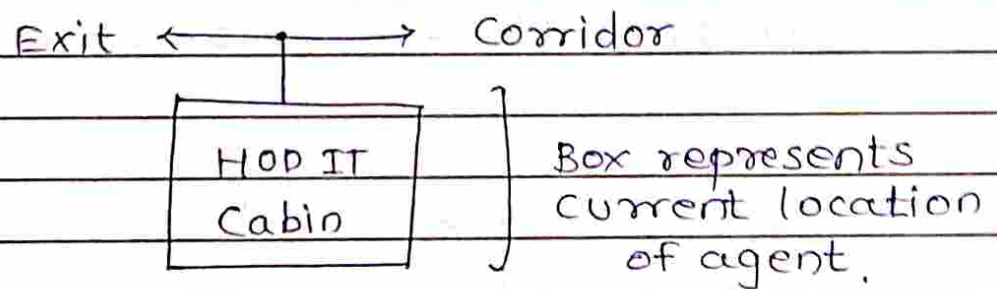 Exit Corridor
HOD IT
Cabin
Box represents
current location
of agent.